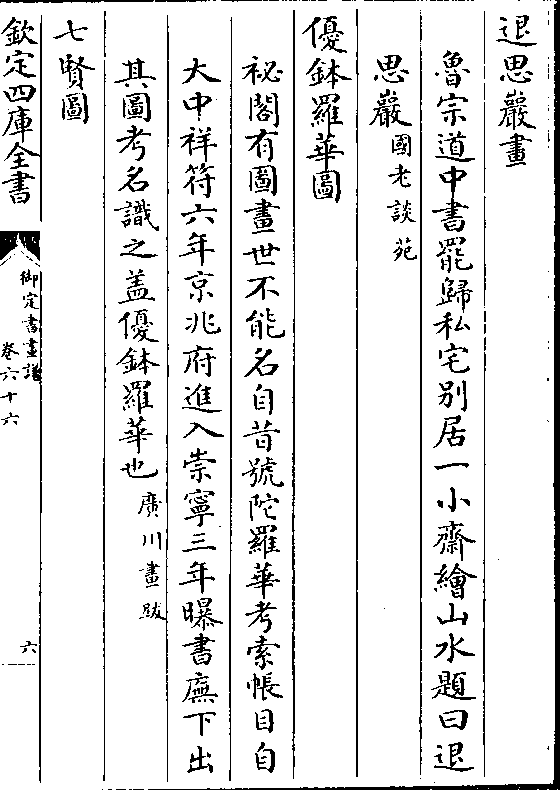 退思巖畫
魯宗道中書罷歸私宅别居一小齋繪山水題曰退
思巖國老談苑
優鉢羅華圖
祕閣有圖畫世不能名自昔號陀羅華考索帳目自
大中祥符六年京兆府進入崇寧三年曝書廡下出
其圖考名識之盖優鉢羅華也廣川畫跋
七賢圖
欽定四庫全書
御定書畫譜
卷六十六
六